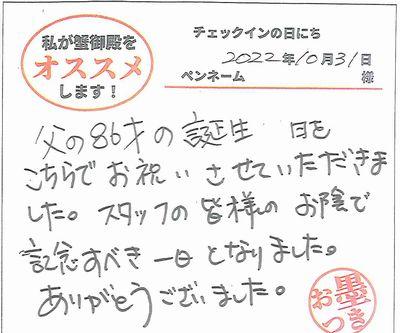 私が蟹御殿を
オススメ
します！
チェックインの日にち
2022年10月31日
ペンネーム 様
父の86才の誕生 日を
こちらでお祝いさせていただきま
した。スタッフの皆様のお陰で
記念すべき一日となりました。
ありがとうございました。
お墨
つき